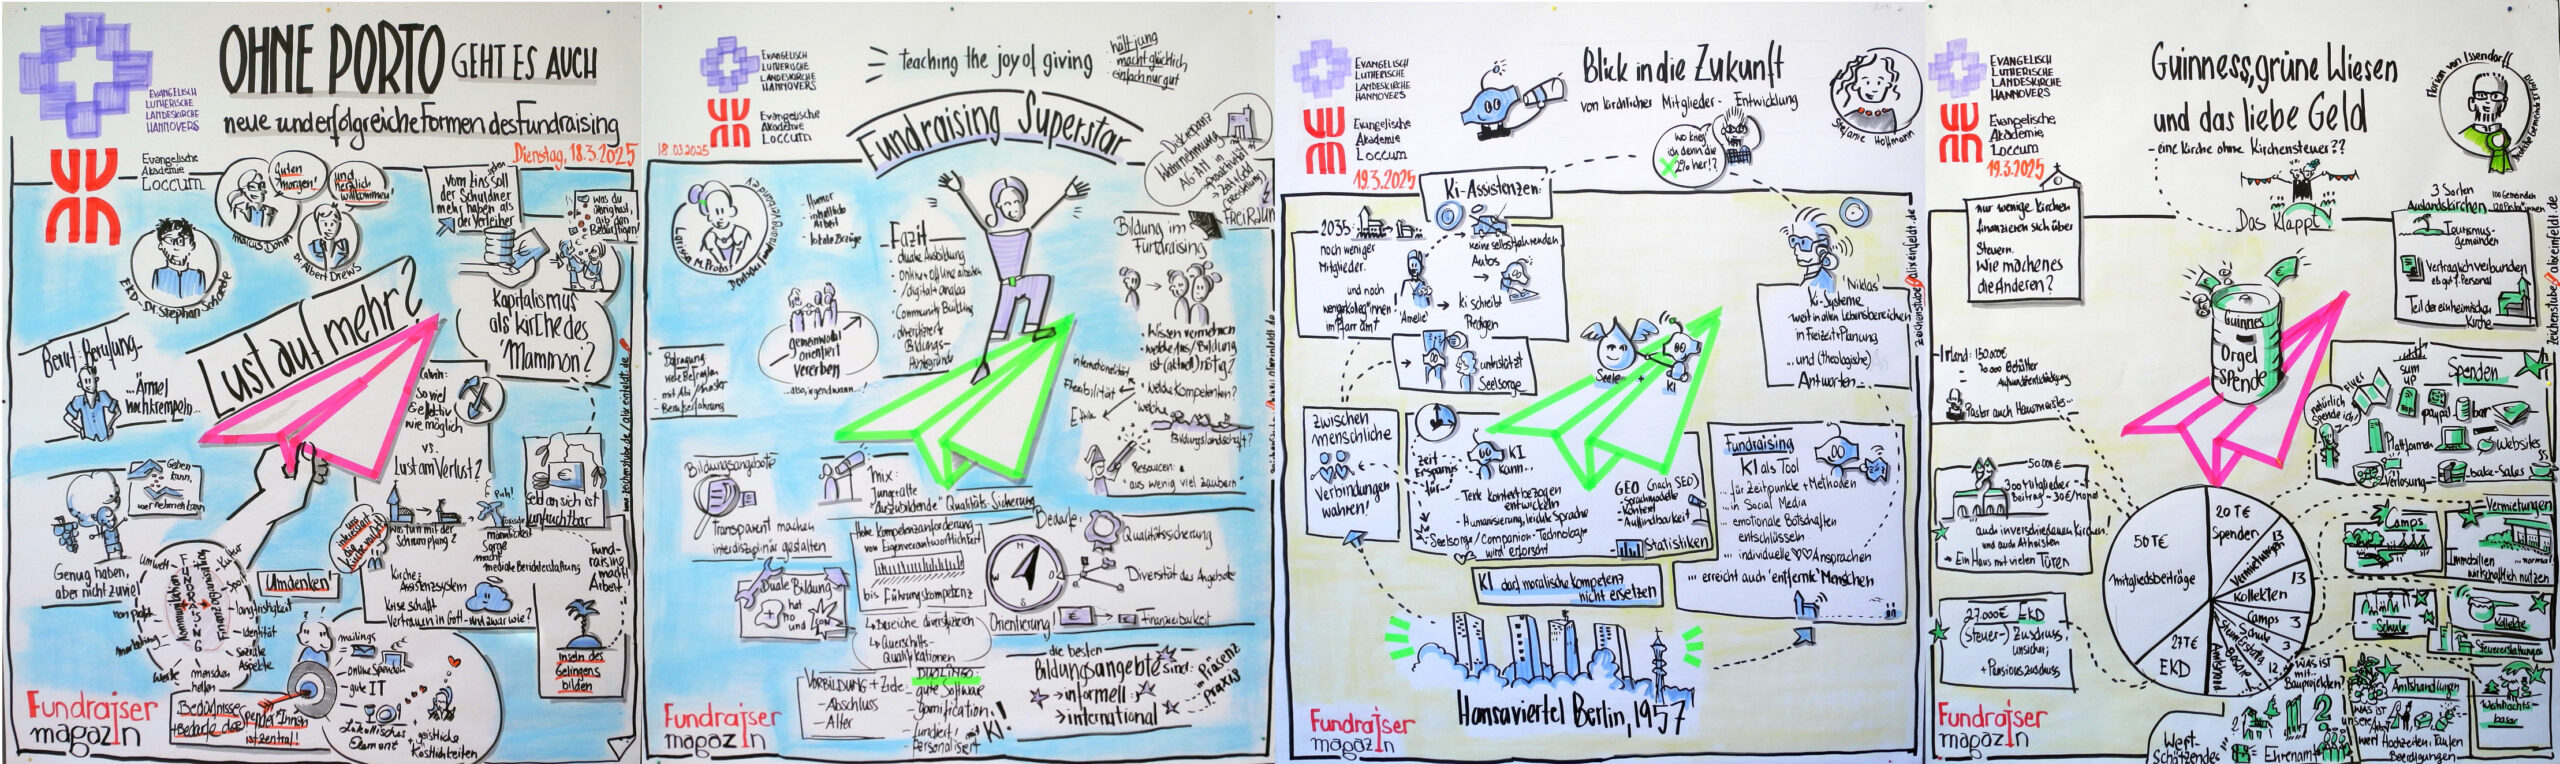 OHNE PORTO GEHT ES AUCH
neue und erfolgreiche Formen des Fundraising
EVANGELISCH
LUTHERISCHE
LANDESKIRCHE
HANNOVERS
Evangelische
Akademie
Loccum
Dienstag, 18.3.2025
Guten
Morgen!
und
herzlich
willkommen!
Marcus Dohm
Dr. Albert Drews
EKD, Dr. Stephan Schaede
vom Zins soll
der Schuldner
mehr haben als
der Verleiher
was du
übrig hast,
gib den
Bedürftigen
Kapitalismus
als Kirche des
'Mammon'?
Lust auf mehr?
Beruf: Berufung-
...Ärmel
hochkrempeln...
Calvin:
So viel
& effektiv
wie möglich
vs.
Lust am Verlust?
Geben
kann,
wer nehmen kann
Genug haben,
aber nicht zuviel
Geld an sich ist
unfruchtbar
was tun mit der
Schrumpfung?
puh!
Sorge
macht
mediale Berichterstattung
Umdenken!
Kirche:
Assistenzsystem
Krise schafft
Vertrauen in Gott - und zwar wie?
Fund-
raising
macht
Arbeit!
Inseln des
Gelingens
bilden
FUNDRAISING
Kommunikation
Finanzen
Umwelt
Kultur
Sport
langfristigkeit
Identität
Soziale
Aspekte
menschen
helfen
Werte
marketing
non profit
mailings
online Spenden
gute IT
Lukullisches
Element
+ geistliche
Köstlichkeiten
Bedürfnisse
+ Bedarfe der
Spender*Innen
ist zentral!
Fundraiser
magazin
www.zeichenstube.de / alix einfeldt.de
EVANGELISCH
LUTHERISCHE
LANDESKIRCHE
HANNOVERS
Evangelische
Akademie
Loccum
18.03.2025
teaching the joy of giving
hält jung
macht glücklich
einfach nur gut
Fundraising Superstar
Diskrepanz
Wahrnehmung
AG-AN in
FREIRAUM
Larissa M. Probst
Deutscher Fundraising Verband
- Humor
- inhaltliche
Arbeit
- lokale Bezüge
Fazit
- duale Ausbildung
- online + offline arbeiten
/digital + analog
- Community Building
- diversifizierte
Bildungs-
Hintergründe
Bildung im
Fundraising
- Wissen vermehren
- welche Aus/Bildung
ist (aktuell) nötig?
- welche Kompetenzen?
- welche
Bildungslandschaft?
gemeinwohl
orientiert
vererben
...also, irgendwann...!
Befragung:
viele Befragten
- mit Abi/
Master
- Berufserfahrung
internationalität
Flexibilität
Ethik
Ressourcen:
aus wenig viel zaubern
Bildungsangebote
Transparent machen
interdisziplinär gestalten
Mix:
Jungkräfte
auszubildende
Qualitäts-Sicherung
Hohe Kompetenzanforderung
von Eigenverantwortlichkeit
bis Führungskompetenz
Bedarfe:
Qualitätssicherung
Diversität der Angebote
Finanzierbarkeit
Orientierung!
Duale Bildung
hat
Pro und Con
Bereiche diversifizieren
Querschnitts-
Qualifikationen
VORBILDUNG + Ziele:
- Abschluss
- Alter
DUOLINGO:
gute Software
- gamification
- fundiert
- personalisiert
mit
KI!
die besten
Bildungsangebote sind:
informell
international
Präsenz
Praxis
Fundraiser
magazin
EVANGELISCH
LUTHERISCHE
LANDESKIRCHE
HANNOVERS
Evangelische
Akademie
Loccum
19.3.2025
Blick in die Zukunft
von kirchlicher Mitglieder-Entwicklung
wo krieg
ich denn die
2% her!?
Stefanie Hoffmann
Ki-Assistenzen:
2035:
noch weniger
Mitglieder.
und noch
weniger Kolleg*innen
im Pfarramt
keine selbstfahrenden
Autos
'Amelie'
Ki schreibt
Predigten
unterstützt
Seelsorge
'Niklas'
Ki-Systeme
weit in allen Lebensbereichen
in Freizeit + Planung
...und (theologische)
Antworten...
Seele + KI
zwischen
menschliche
Verbindungen
wahren!
Zeit
Ersparnis
für...
KI
kann...
- Texte kontextbezogen
entwickeln
- Humanisierung, leichte Sprache
- Seelsorge/Companion-Technologie
wird erforscht
GEO (nach SEO)
- Sprachmodelle
- Kontext
- Auffindbarkeit
Statistiken
Fundraising
KI als Tool
... für Zeitpunkte + Methoden
... in Social Media
... emotionale Botschaften
entschlüsseln
... individuelle Ansprachen
... erreicht auch 'entfernte' Menschen
KI darf moralische Kompetenz
nicht ersetzen
Hansaviertel Berlin, 1957
Fundraiser
magazin
zeichenstube@alixeinfeldt.de
EVANGELISCH
LUTHERISCHE
LANDESKIRCHE
HANNOVERS
Evangelische
Akademie
Loccum
19.3.2025
Guinness, grüne Wiesen
und das liebe Geld
- eine Kirche ohne Kirchensteuer??
Florian von Issendorff
Das Klappt
nur wenige Kirchen
finanzieren sich über
Steuern.
Wie machen es
die Anderen?
3 Sorten
Auslandskirchen
100 Gemeinden
120 Pastor*innen
Tourismus-
gemeinden
Vertraglich verbunden
Teil der einheimischen
Kirche
Guinnes
Orgel
SPENDE
Irland: 150.000€
Pastor auch Hausmeister...
Spenden
SUM
UP
Flyer
natürlich
spende ich!
paypal
bar
Plattformen
Websites
Verlosung
bake-Sales
50.000€
300 Mitglieder
Beitrag ~30€/Monat
auch in verschiedenen Kirchen!
und auch Atheisten
Ein Haus mit vielen Türen
27.000€ EKD
(Steuer-) Zuschuss,
unsicher;
+ Pensionszuschuss
50T€
mitgliedsbeiträge
20T€
Spenden
13
Vermietungen
13
Kollekten
Camps 3
Schule
3
Basar
12
27T€
EKD
Camps
Vermietungen
Immobilien
wirtschaftlich nutzen
Schule
Kollekte
Steuererstattungen
Was ist
mit...
Bauprojekten?
Amtshandlungen
Was ist
unsere
Arbeit
wert
Hochzeiten, Taufen
Beerdigungen
Weihnachts-
basar
Wert-
Schätzendes
Ehrenamt
Fundraiser
magazin
zeichenstube@alixeinfeldt.de